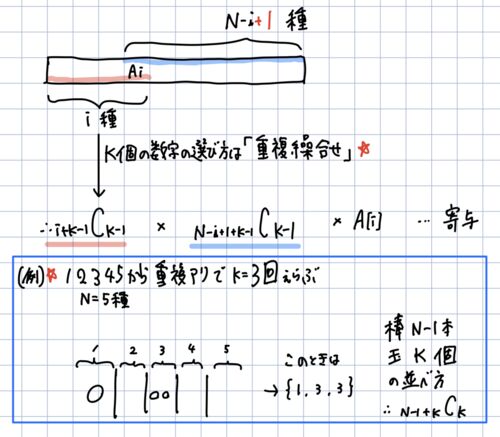 N-i+1 種
Ai
i 種
K個の数字の選び方は「重複組合せ」☆
∴ i+K-1CK-1 × N-i+1+K-1CK-1 × A[i] … 寄与
(例)☆ 12345から重複アリでK=3回えらぶ
N=5種
1 2 3 4 5
このときは
→ {1, 3, 3}
棒 N-1本
玉 K 個
の並べ方
∴ N-1+KCK